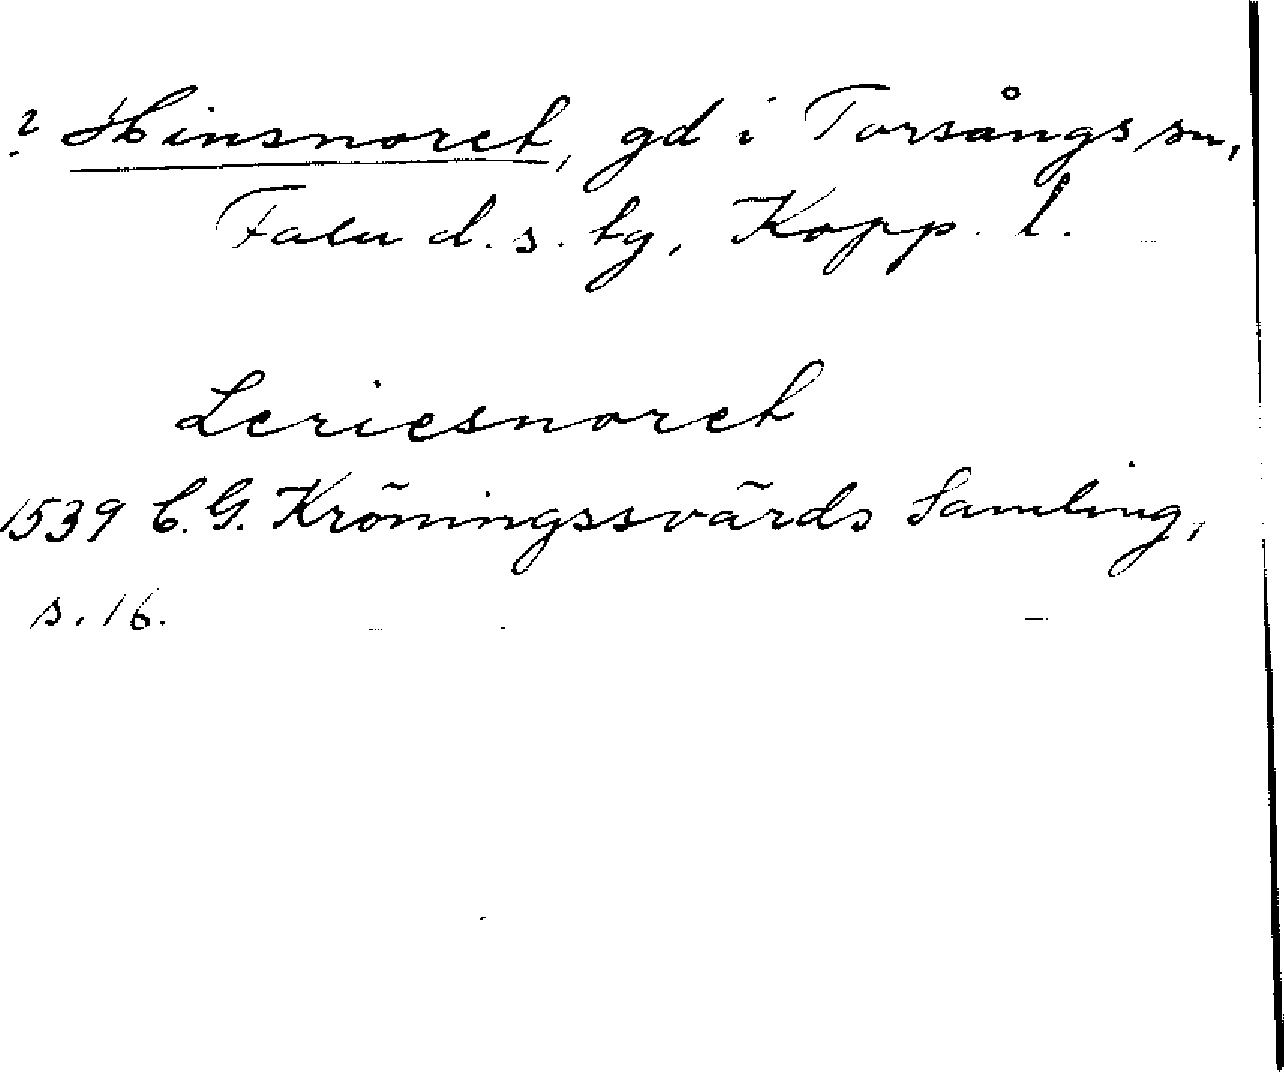 ? Hinsnoret, gd i Torsångs sn,
Falu d. s. tg, Kopp. l.
Leriesnoret
1539 C. G. Kröningssvärds Samling,
s. 16.